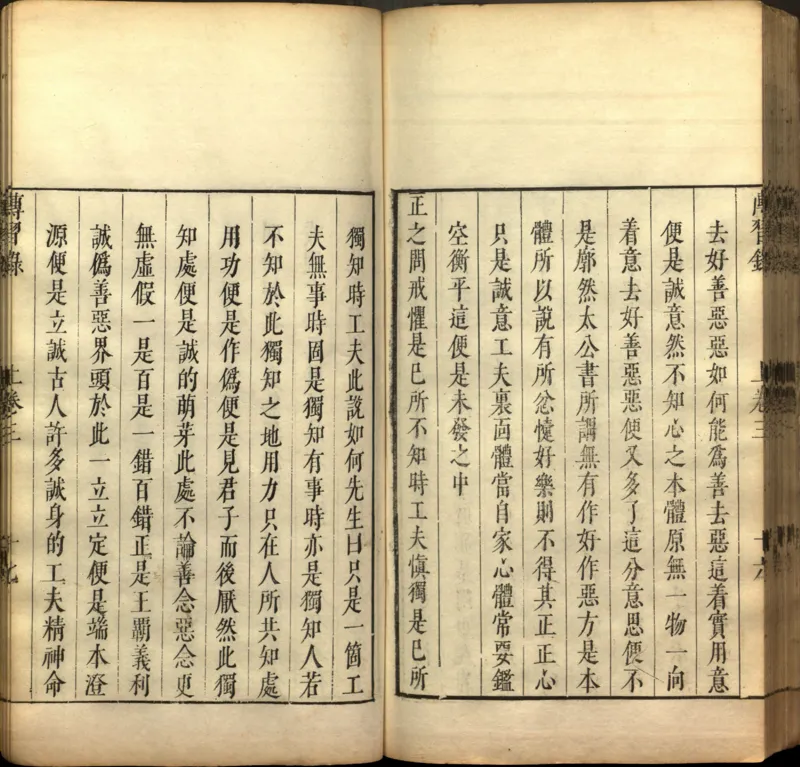 傳習錄 上卷三 十六
去好善惡惡如何能爲善去惡這着實用意
便是誠意然不知心之本體原無一物一向
着意去好善惡惡便又多了這分意思便不
是廓然太公書所謂無有作好作惡方是本
體所以說有所忿懥好樂則不得其正正心
只是誠意工夫裏面體當自家心體常要鑑
空衡平這便是未發之中
正之問戒懼是已所不知時工夫愼獨是已所
獨知時工夫此說如何先生曰只是一箇工
夫無事時固是獨知有事時亦是獨知人若
不知於此獨知之地用力只在人所共知處
用功便是作僞便是見君子而後厭然此獨
知處便是誠的萌芽此處不論善念惡念更
無虛假一是百是一錯百錯正是王霸義利
誠僞善惡界頭於此一立立定便是端本澄
源便是立誠古人許多誠身的工夫精神命
傳習錄 上卷三 十七